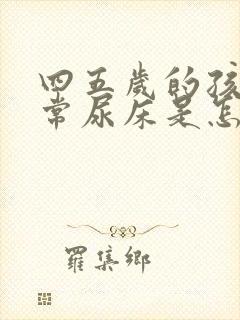 四五岁的孩
常尿床是怎
罗集乡